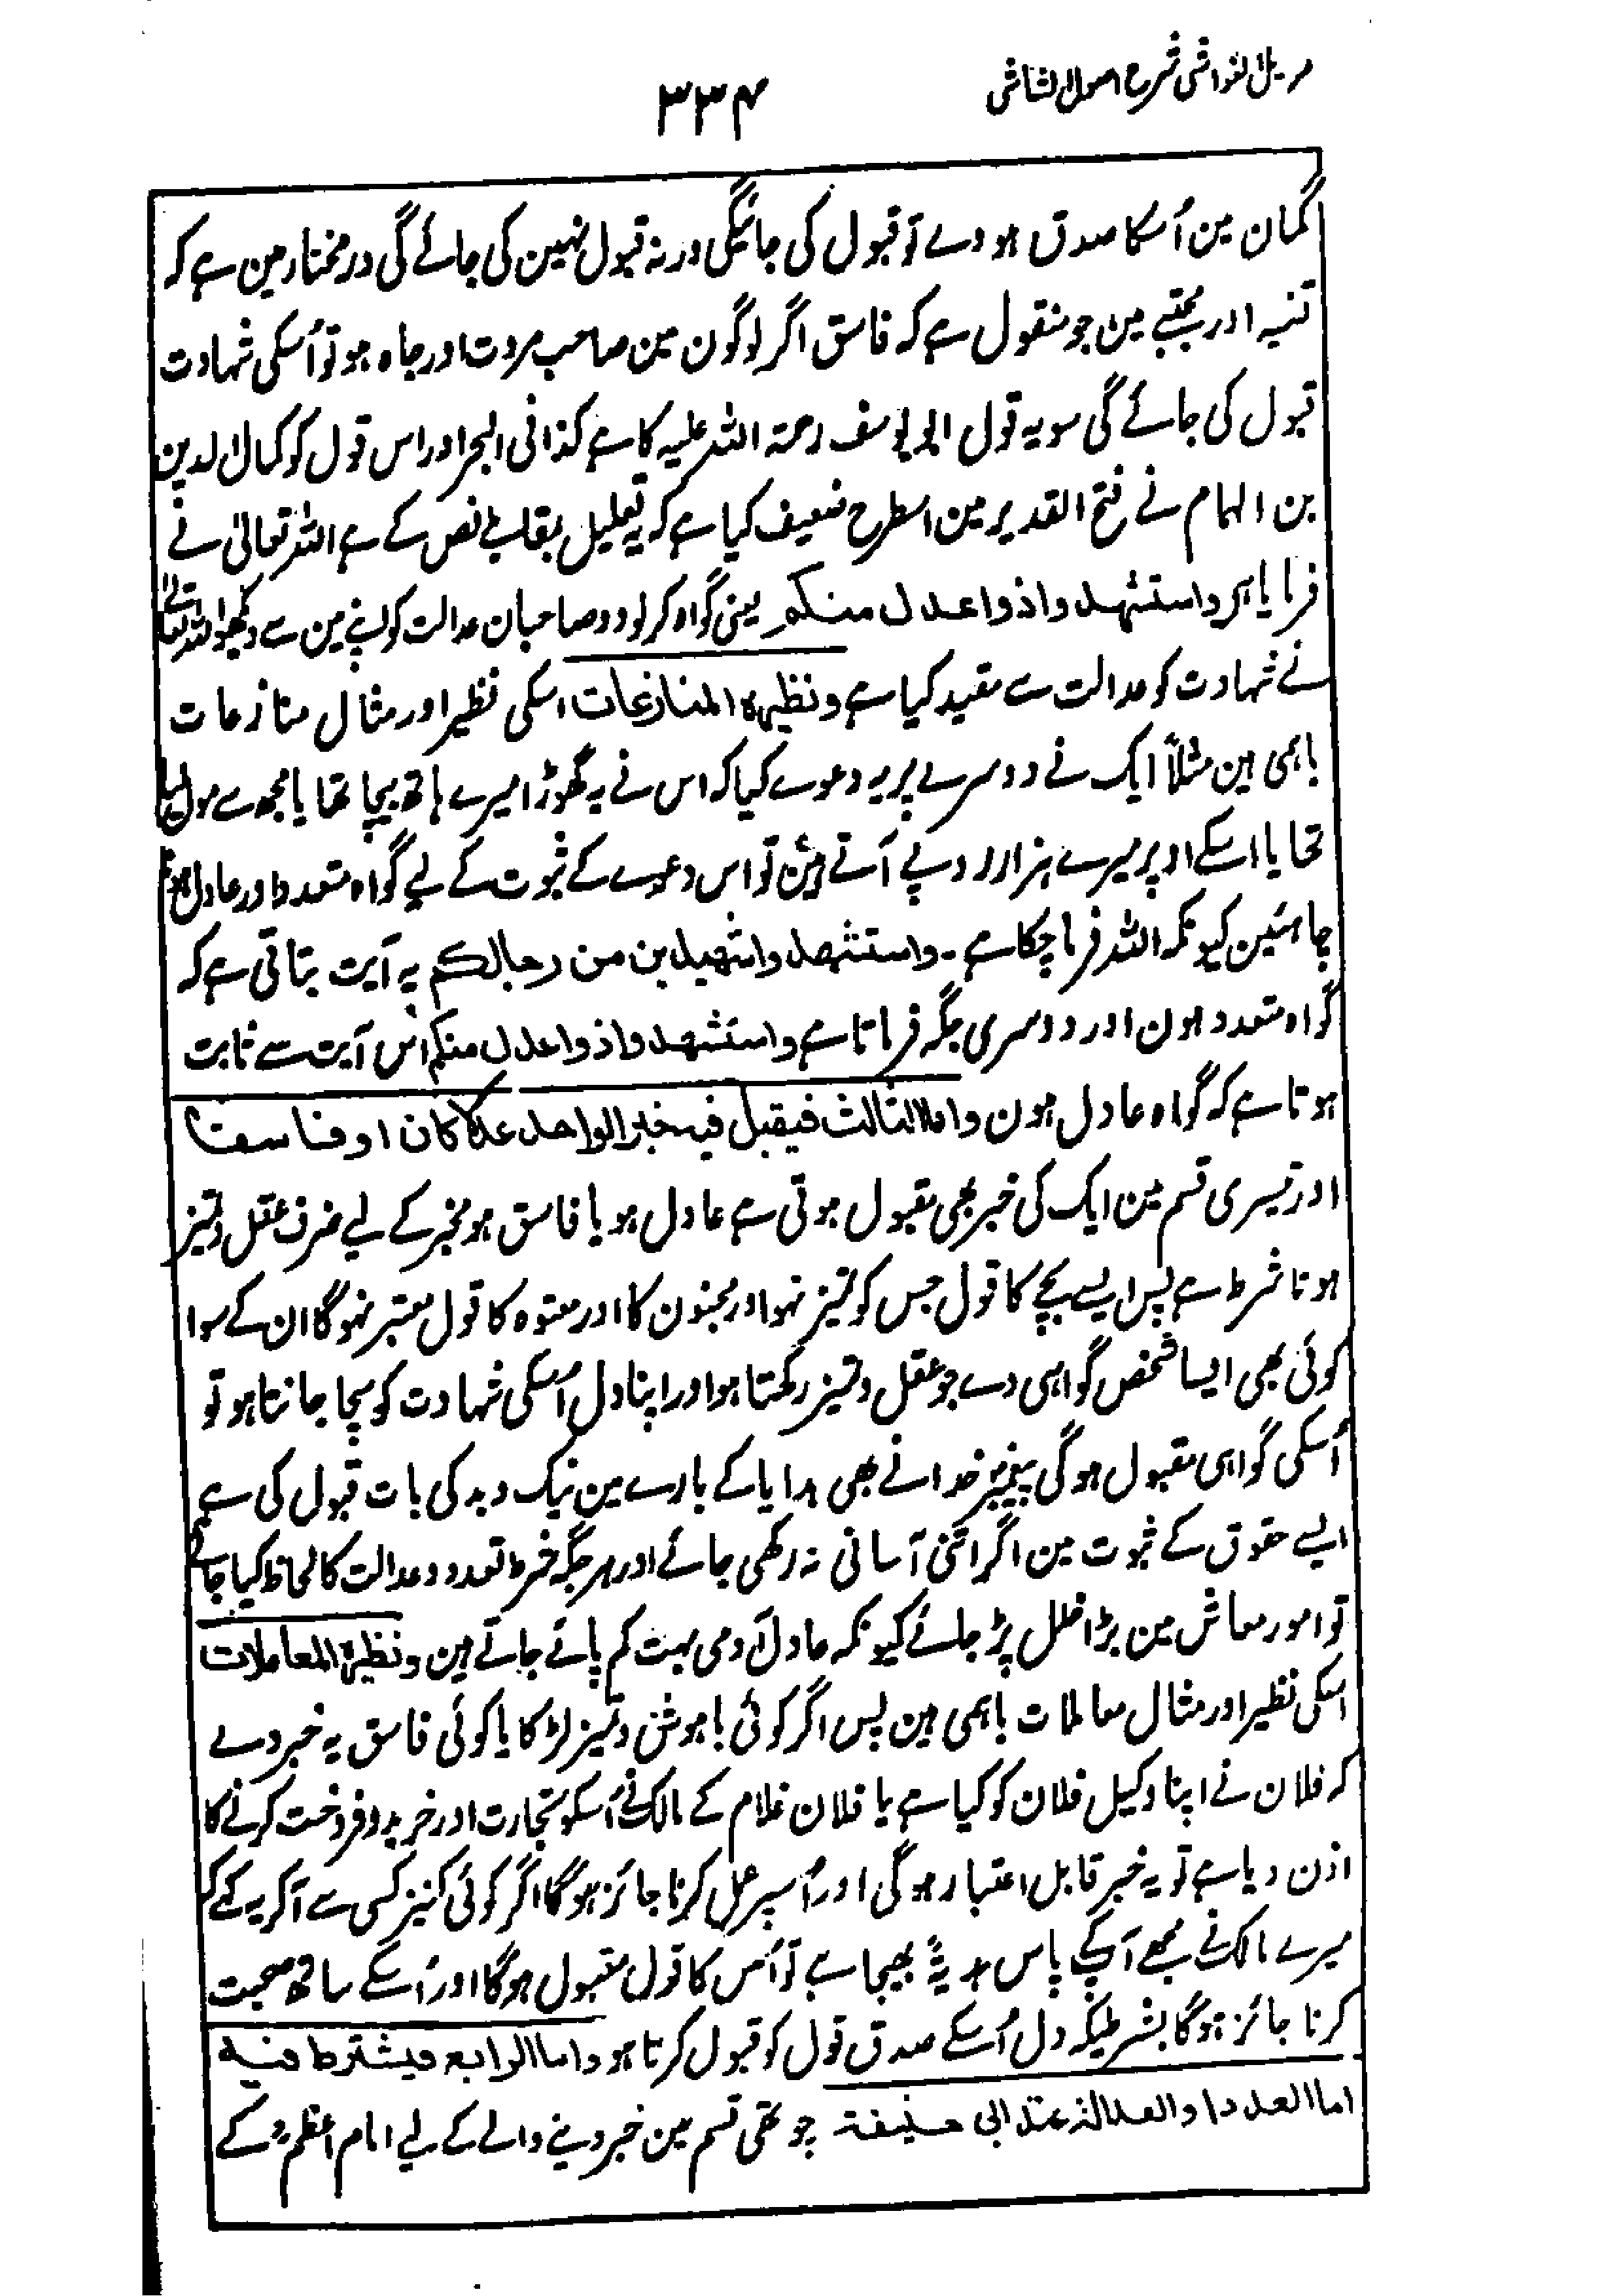 مزیل الغواشی شرح اصول الشاشی
۳۳۴
گمان مین اُسکا صدق ہووے تو قبول کی جائیگی ورنہ قبول نہین کی جائے گی درمختار مین ہے کہ
قنیہ اور مجتبے مین جو منقول ہے کہ فاسق اگر لوگون مین صاحب مروت اور جاہ ہو تو اُسکی شہادت
قبول کی جائے گی سو یہ قول ابو یوسف رحمۃ اللہ علیہ کا ہے کذا فی البحر اور اس قول کو کمال الدین
بن الہمام نے فتح القدیر مین اسطرح ضعیف کیا ہے کہ یہ تعلیل بمقابلے نص کے ہے اللہ تعالیٰ نے
فرمایا ہے واستشہدوا ذوا عدل منکم یعنی گواہ کر لو دو صاحبان عدالت کو اپنے مین سے دیکھو اللہ تعالےٰ
نے شہادت کو عدالت سے مقید کیا ہے ونظیرہ المنازعات اسکی نظیر اور مثال منازعات
باہمی ہین مثلاً ایک نے دوسرے پر یہ دعوے کیا کہ اس نے یہ گھوڑا میرے ہاتھ بیچا تھا یا مجھ سے مول لیا
تھا یا اسکے اوپر میرے ہزار روپے آتے ہین تو اس دعوے کے ثبوت کے لیے گواہ متعدد اور عادل ہونے
چاہئین کیونکہ اللہ فرما چکا ہے۔ واستشہدوا شہیدین من رجالکم یہ آیت بتاتی ہے کہ
گواہ متعدد ہون اور دوسری جگہ فرماتا ہے واستشہدوا ذوا عدل منکم اس آیت سے ثابت
ہوتا ہے کہ گواہ عادل ہون واما الثالث فیقبل فیہ خبر الواحد عدلا کان او فاسقا
اور تیسری قسم مین ایک کی خبر بھی مقبول ہوتی ہے عادل ہو یا فاسق ہو مخبر کے لیے صرف عقل وتمیز
ہونا شرط ہے پس ایسے بچے کا قول جس کو تمیز نہو اور مجنون کا اور معتوہ کا قول معتبر نہوگا ان کے سوا
کوئی بھی ایسا شخص گواہی دے جو عقل وتمیز رکھتا ہو اور اپنا دل اُسکی شہادت کو سچا جانتا ہو تو
اُسکی گواہی مقبول ہوگی پیغمبر خدا نے بھی ہدایا کے بارے مین نیک وبد کی بات قبول کی ہے
ایسے حقوق کے ثبوت مین اگر اتنی آسانی نہ رکھی جائے اور ہر جگہ شرط تعدد وعدالت کا لحاظ کیا جائے
تو امور معاش مین بڑا خلل پڑ جائے کیونکہ عادل آدمی بہت کم پائے جاتے ہین ونظیرہ المعاملات
اسکی نظیر اور مثال معاملات باہمی ہین پس اگر کوئی باہوش وتمیز لڑکا یا کوئی فاسق یہ خبر دے
کہ فلان نے اپنا وکیل فلان کو کیا ہے یا فلان غلام کے مالک نے اُسکو تجارت اور خرید وفروخت کرنے کا
اذن دیا ہے تو یہ خبر قابل اعتبار ہوگی اور اُسپر عمل کرنا جائز ہوگا اگر کوئی کنیز کسی سے آکر یہ کہے کہ
میرے مالک نے مجھے آپکے پاس ہدیۃً بھیجا ہے تو اُس کا قول مقبول ہوگا اور اُسکے ساتھ صحبت
کرنا جائز ہوگا بشرطیکہ دل اُسکے صدق قول کو قبول کرتا ہو واما الرابع فیشترط فیہ
اما العدد او العدالۃ عند ابی حنیفۃ چوتھی قسم مین خبر دینے والے کے لیے امام اعظمؒ کے